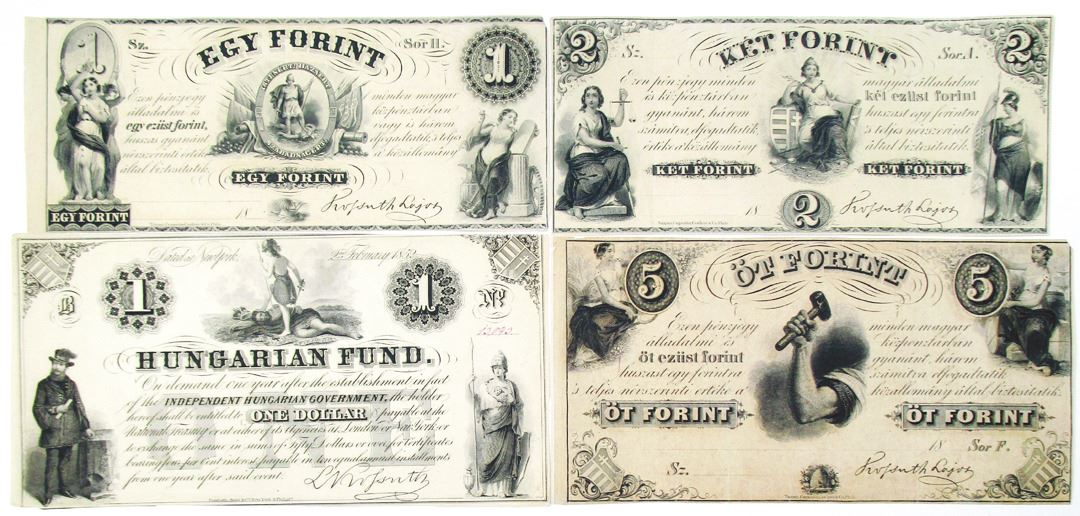 1
EGY FORINT
1
Sz.
Sor H.
Ezen pénzjegy
minden magyar
álladalmi és
közpénztárban
egy ezüst forint,
huszas gyanánt
elfogadtatik s teljes
névszerinti értéke
a' közállomány
által biztosítatik.
EGY FORINT
EGY FORINT
18
Kossuth Lajos
2
KÉT FORINT
2
Sz.
Sor A.
Ezen pénzjegy minden
magyar álladalmi
és közpénztárban
két ezüst forint
gyanánt, három
huszast egy forintra
számítva elfogadtatik
's teljes névszerinti
értéke a' közállomány
által biztosítatik.
KÉT FORINT
KÉT FORINT
18
2
Kossuth Lajos
Dated in New York,
2nd February 1852
1
1
B
No
HUNGARIAN FUND.
On demand one year after the establishment in fact
of the INDEPENDENT HUNGARIAN GOVERNMENT, the holder
hereof shall be entitled to ONE DOLLAR payable at the
National Treasury or at either of its Agencies at London or New York, or
to exchange the same in sums of Fifty Dollars or over, for certificates
bearing four per Cent interest, payable in ten equal annual installments
from one year after said event.
L Kossuth
5
ÖT FORINT
5
Ezen pénzjegy
minden magyar
álladalmi és
közpénztárban
öt ezüst forint
gyanánt, három
huszast egy forintra
számítva elfogadtatik
's teljes névszerinti értéke a'
közállomány által biztosítatik.
ÖT FORINT
ÖT FORINT
18
Sor F.
Sz.
Kossuth Lajos